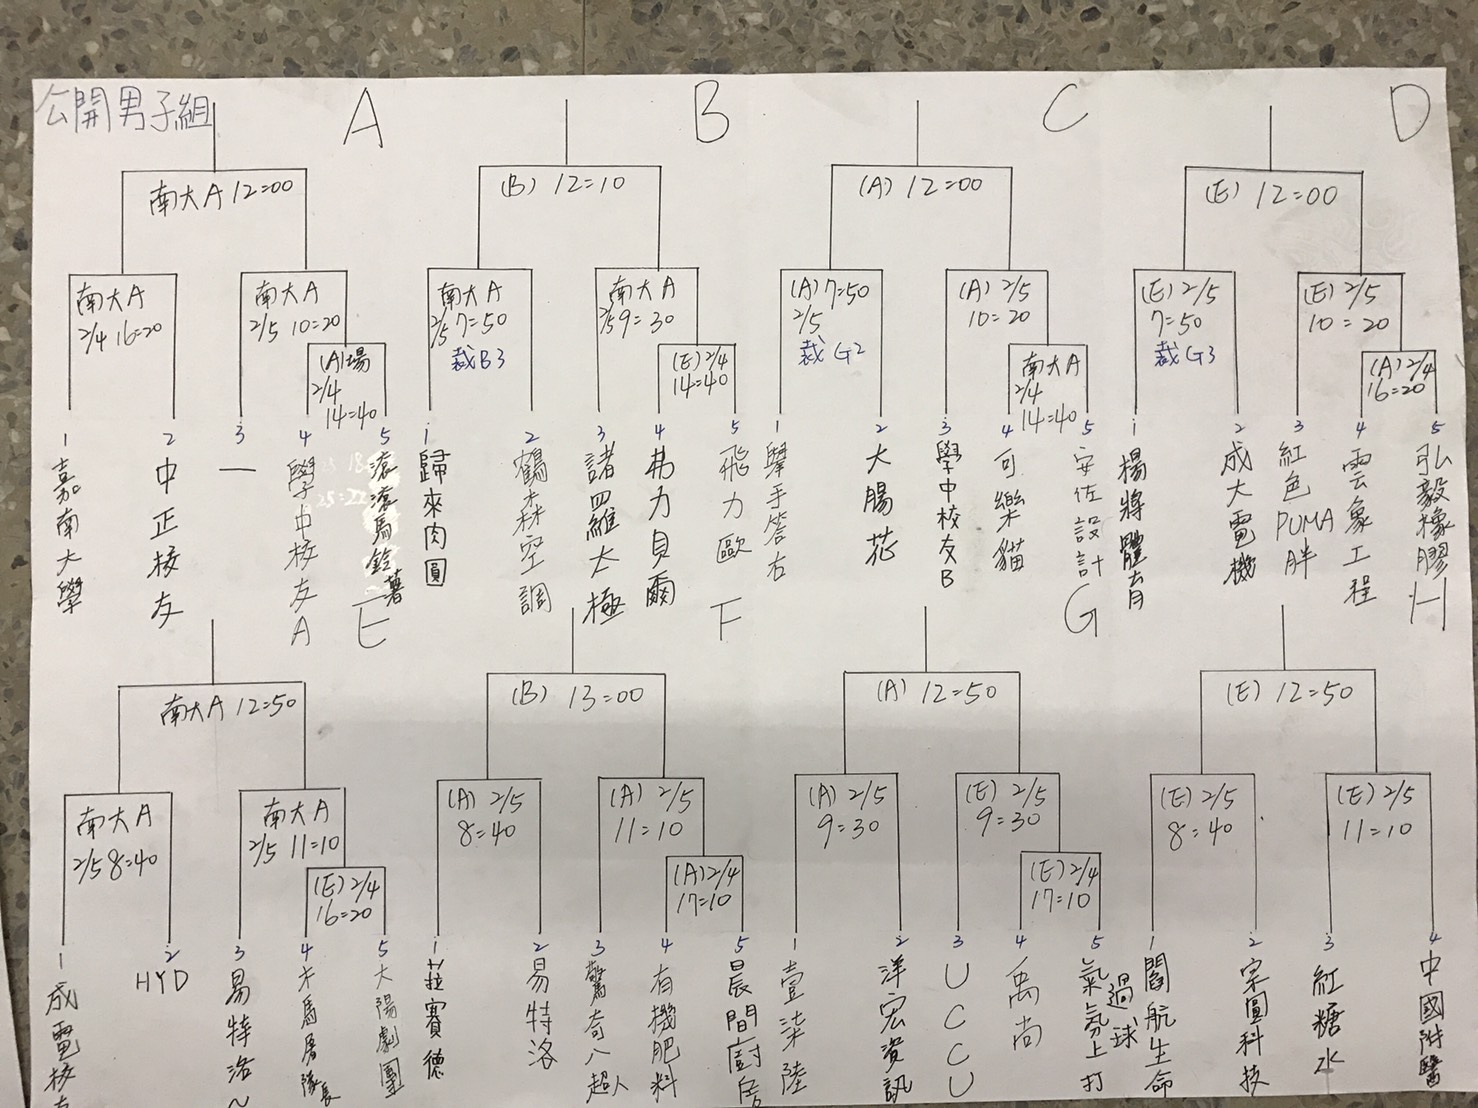 公開男子組
A
B
C
D
南大A 12=00
(B) 12=10
(A) 12=00
(E) 12=00
南大A
2/4 16=20
南大A
2/5 10=20
(A)場
2/4
14=40
南大A
2/5 7=50
裁B3
南大A
2/5 9=30
(E)2/4
14=40
(A)7=50
2/5
裁G2
(A) 2/5
10=20
南大A
2/4
14=40
(E) 2/5
7=50
裁G3
(E) 2/5
10=20
(A)2/4
16=20
1 嘉南大學
2 中正校友
3 一
4 學中校友A
5 滾滾馬鈴薯
1 歸來肉圓
2 鶴森空調
3 諸羅太極
4 弗力貝爾
5 飛力歐
1 舉手答右
2 大腸花
3 學中校友B
4 可樂貓
5 安佐設計
1 楊將體育
2 成大電機
3 紅色PUMA胖
4 雲象工程
5 弘毅橡膠
E
F
G
H
南大A 12=50
(B) 13=00
(A) 12=50
(E) 12=50
南大A
2/5 8=40
南大A
2/5 11=10
(E)2/4
16=20
(A) 2/5
8=40
(A) 2/5
11=10
(A)2/4
17=10
(A) 2/5
9=30
(E) 2/5
9=30
(E)2/4
17=10
(E) 2/5
8=40
(E) 2/5
11=10
1 成電校友
2 HYD
3 易特洛~
4 木馬屠隊長
5 太陽劇團
1 菈賽德
2 易特洛
3 驚奇八超人
4 有機肥料
5 晨間廚房
1 壹柒陸
2 洋宏資訊
3 UCCU
4 禹尚
5 氣氛上打過球
1 閣航生命
2 宗圓科技
3 紅糖水
4 中國附醫